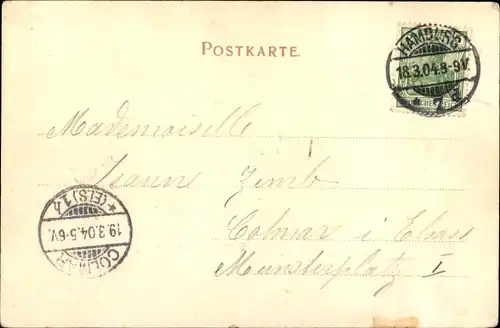 POSTKARTE.
HAMBURG
18.3.04.8-9V.
* 2 d
Mademoiselle
Jeanne Zimb
Colmar i Elsass
Münsterplatz I
COLMAR
19.3.04.5-6V.
*(ELS) 1 h